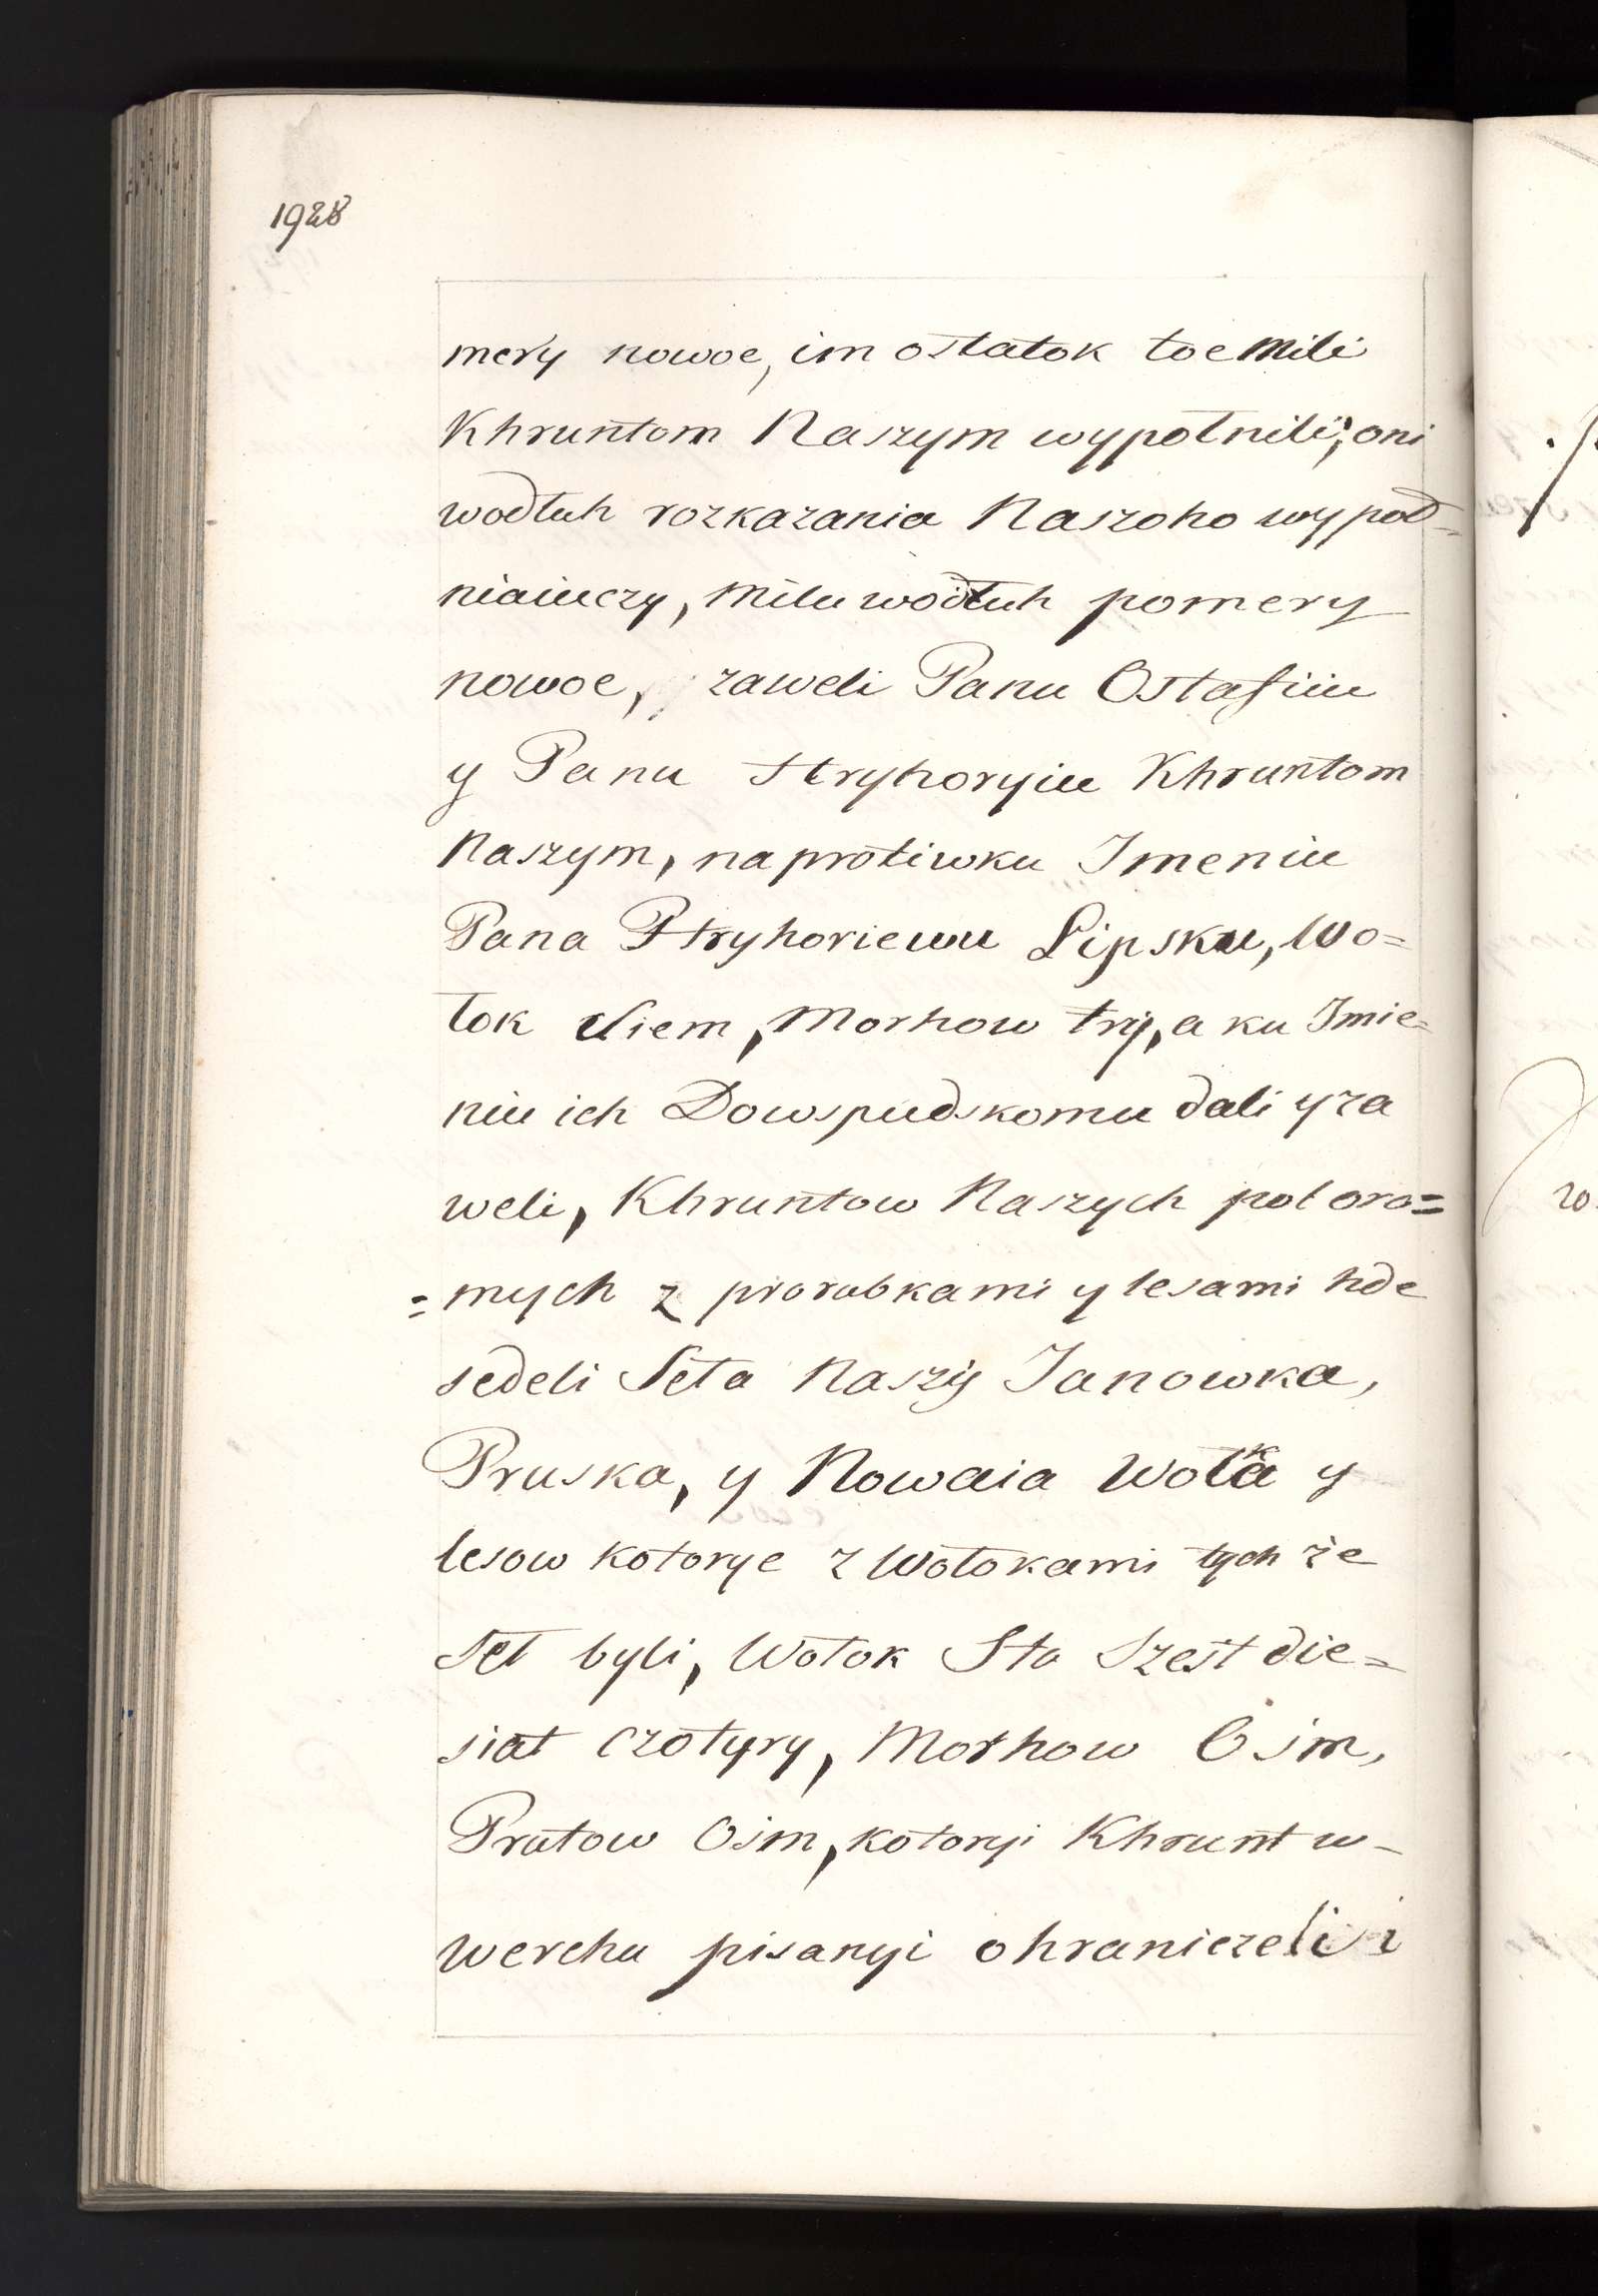 1928
mery nowoe, im ostatok toe Mili
Khruntom Naszym wypołnili, oni
wodłuh rozkazania Naszoho wypoł-
niaiuczy, Milu wodłuh pomery
nowoe, zaweli Panu Ostafiiu
y Panu Hryhoryiu Khruntom
Naszym, na protiwku Imeniu
Pana Hryhoriewu Lipsku, Wo=
łok Siem, Morhow try, a ku Imie=
niu ich Dowspudskomu dali y za
weli, Khruntow Naszych pol oro=
=mych z prorubkami y lesami hde
sedeli Seła Naszy Janowka,
Pruska, y Nowaia Wolka y
lesow kotorye z Wołokami tych że
Seł byli, Wołok Sto Szest die=
siat Czotyry, Morhow Osm,
Prutow Osm, kotoryi Khrunt w-
werchu pisanyi ohraniczeli i